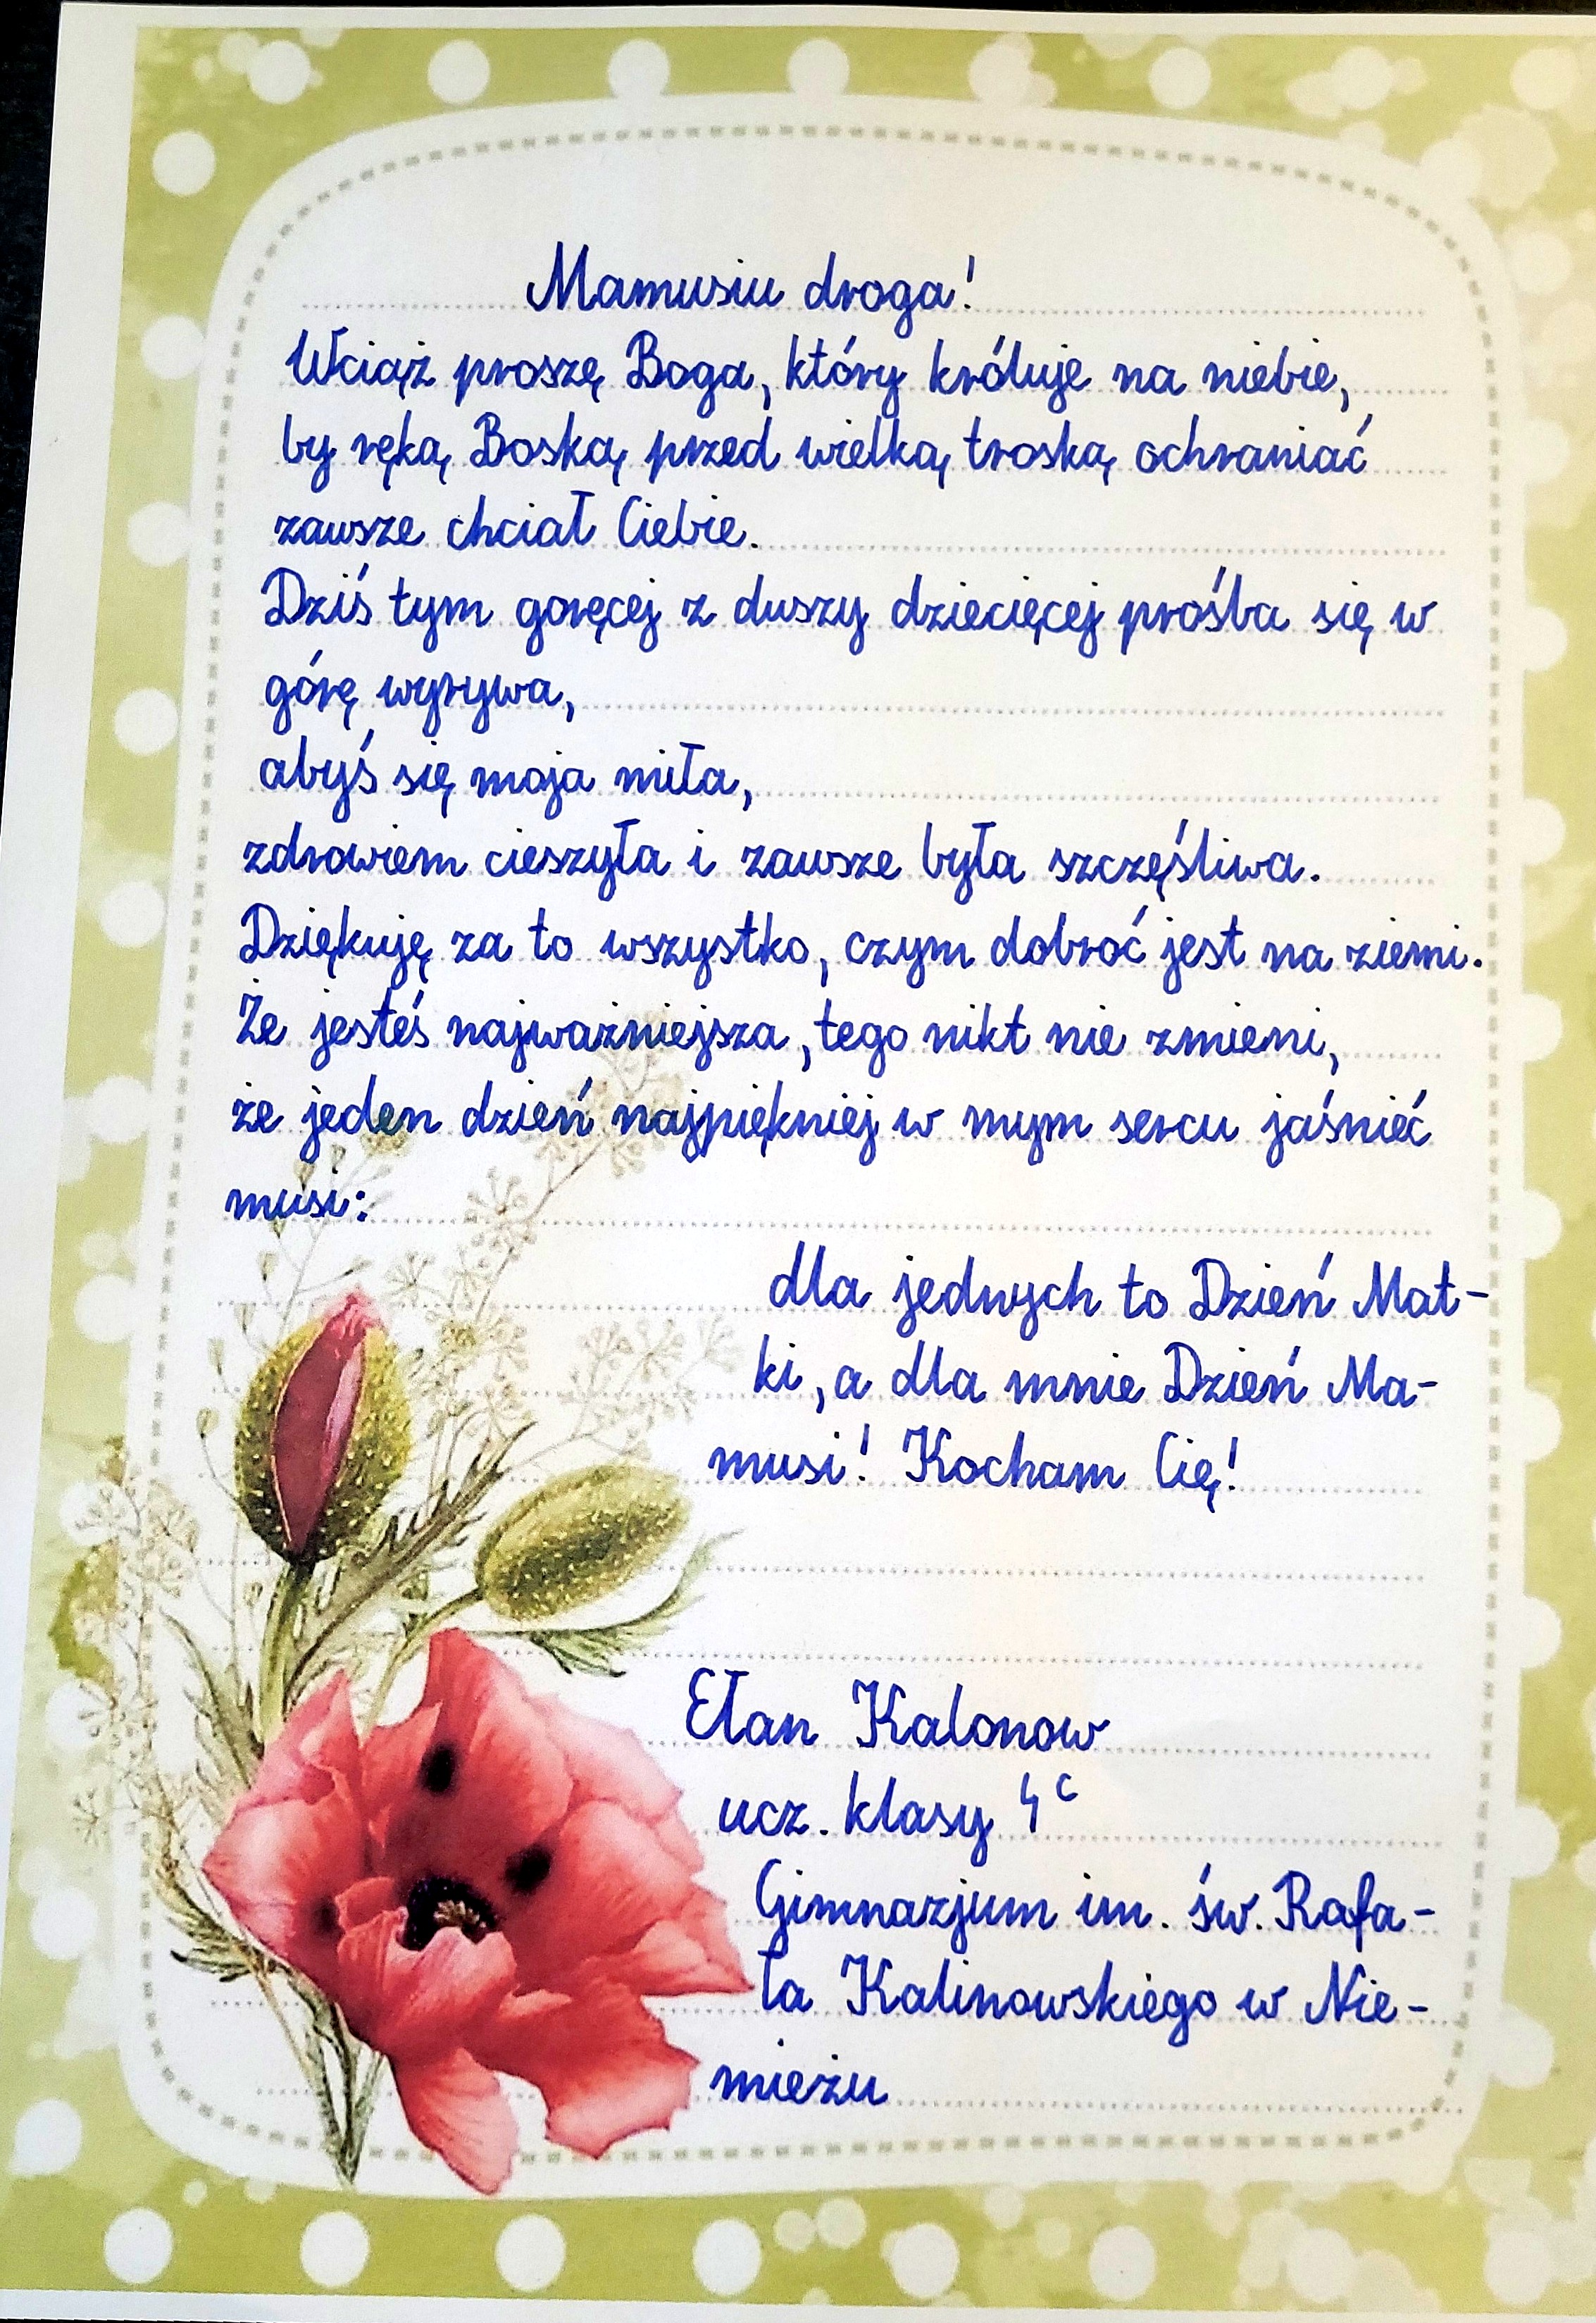 Mamusiu droga!
Wciąż proszę Boga, który króluje na niebie,
by ręką Boską przed wielką troską ochraniać
zawsze chciał Ciebie.
Dziś tym goręcej z duszy dziecięcej prośba się w
górę wyrywa,
abyś się moja miła,
zdrowiem cieszyła i zawsze była szczęśliwa.
Dziękuję za to wszystko, czym dobroć jest na ziemi.
Że jesteś najważniejsza, tego nikt nie zmieni,
że jeden dzień najpiękniej w mym sercu jaśnieć
musi:
dla jednych to Dzień Mat-
ki, a dla mnie Dzień Ma-
musi! Kocham Cię!
Ełan Kalonow
ucz. klasy 4c
Gimnazjum im. św. Rafa-
ła Kalinowskiego w Nie-
mieżu